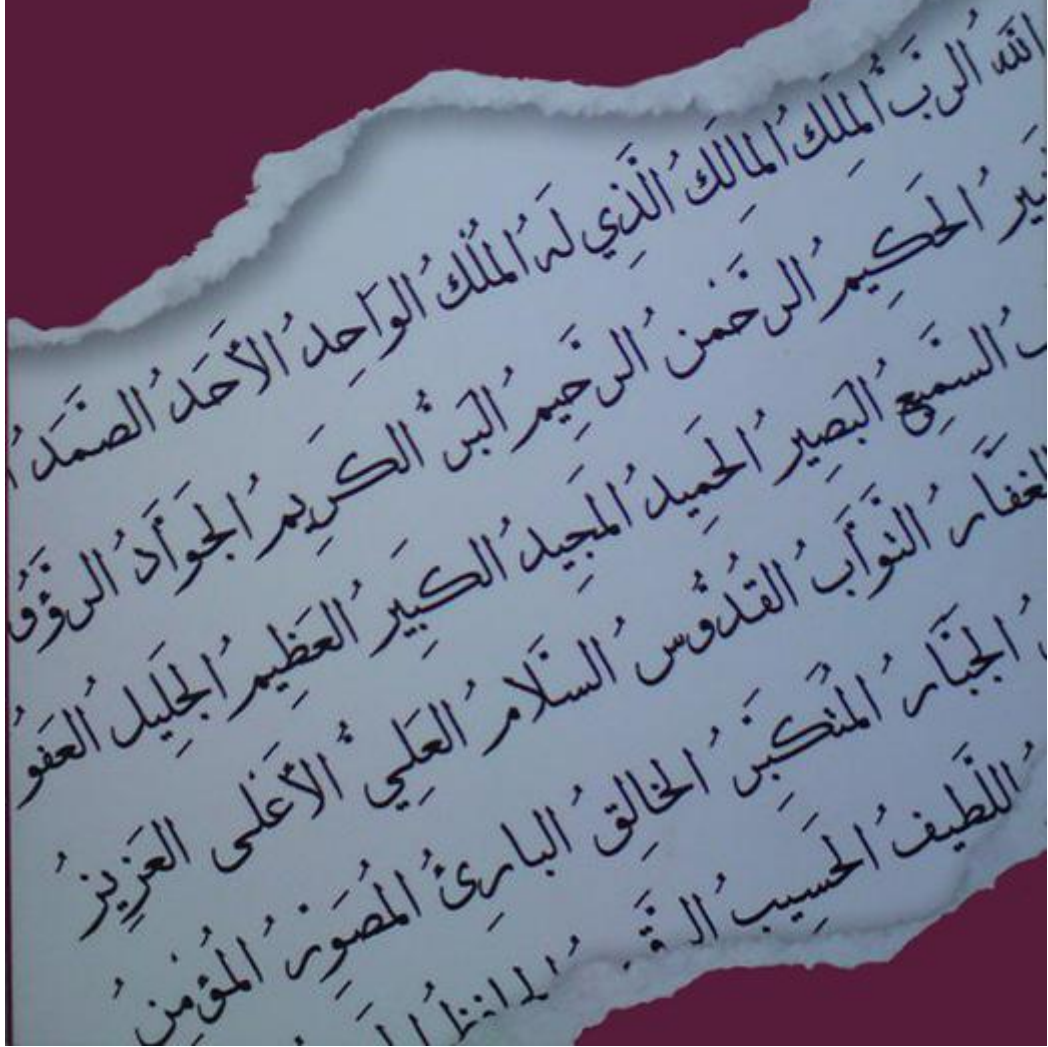 الله الرَّبُّ المَلِكُ المالِكُ الَّذِي لَهُ المُلْكُ الوَاحِدُ الأَحَدُ الصَّمَدُ
الحَكِيمُ الرَّحْمنُ الرَّحِيمُ البَرُّ الكَرِيمُ الجَوَّادُ الرَّؤُ
السَّمِيعُ البَصِيرُ الحَمِيدُ المَجِيدُ الكَبِيرُ العَظِيمُ الجَلِيلُ العَفُوُّ
الغَفَّارُ التَّوَّابُ القُدُّوسُ السَّلَامُ العَلِيُّ الأَعْلَى العَزِيزُ
الجَبَّارُ المُتَكَبِّرُ الخَالِقُ البارِئُ المُصَوِّرُ المُؤْمِنُ
اللَّطِيفُ الحَسِيبُ